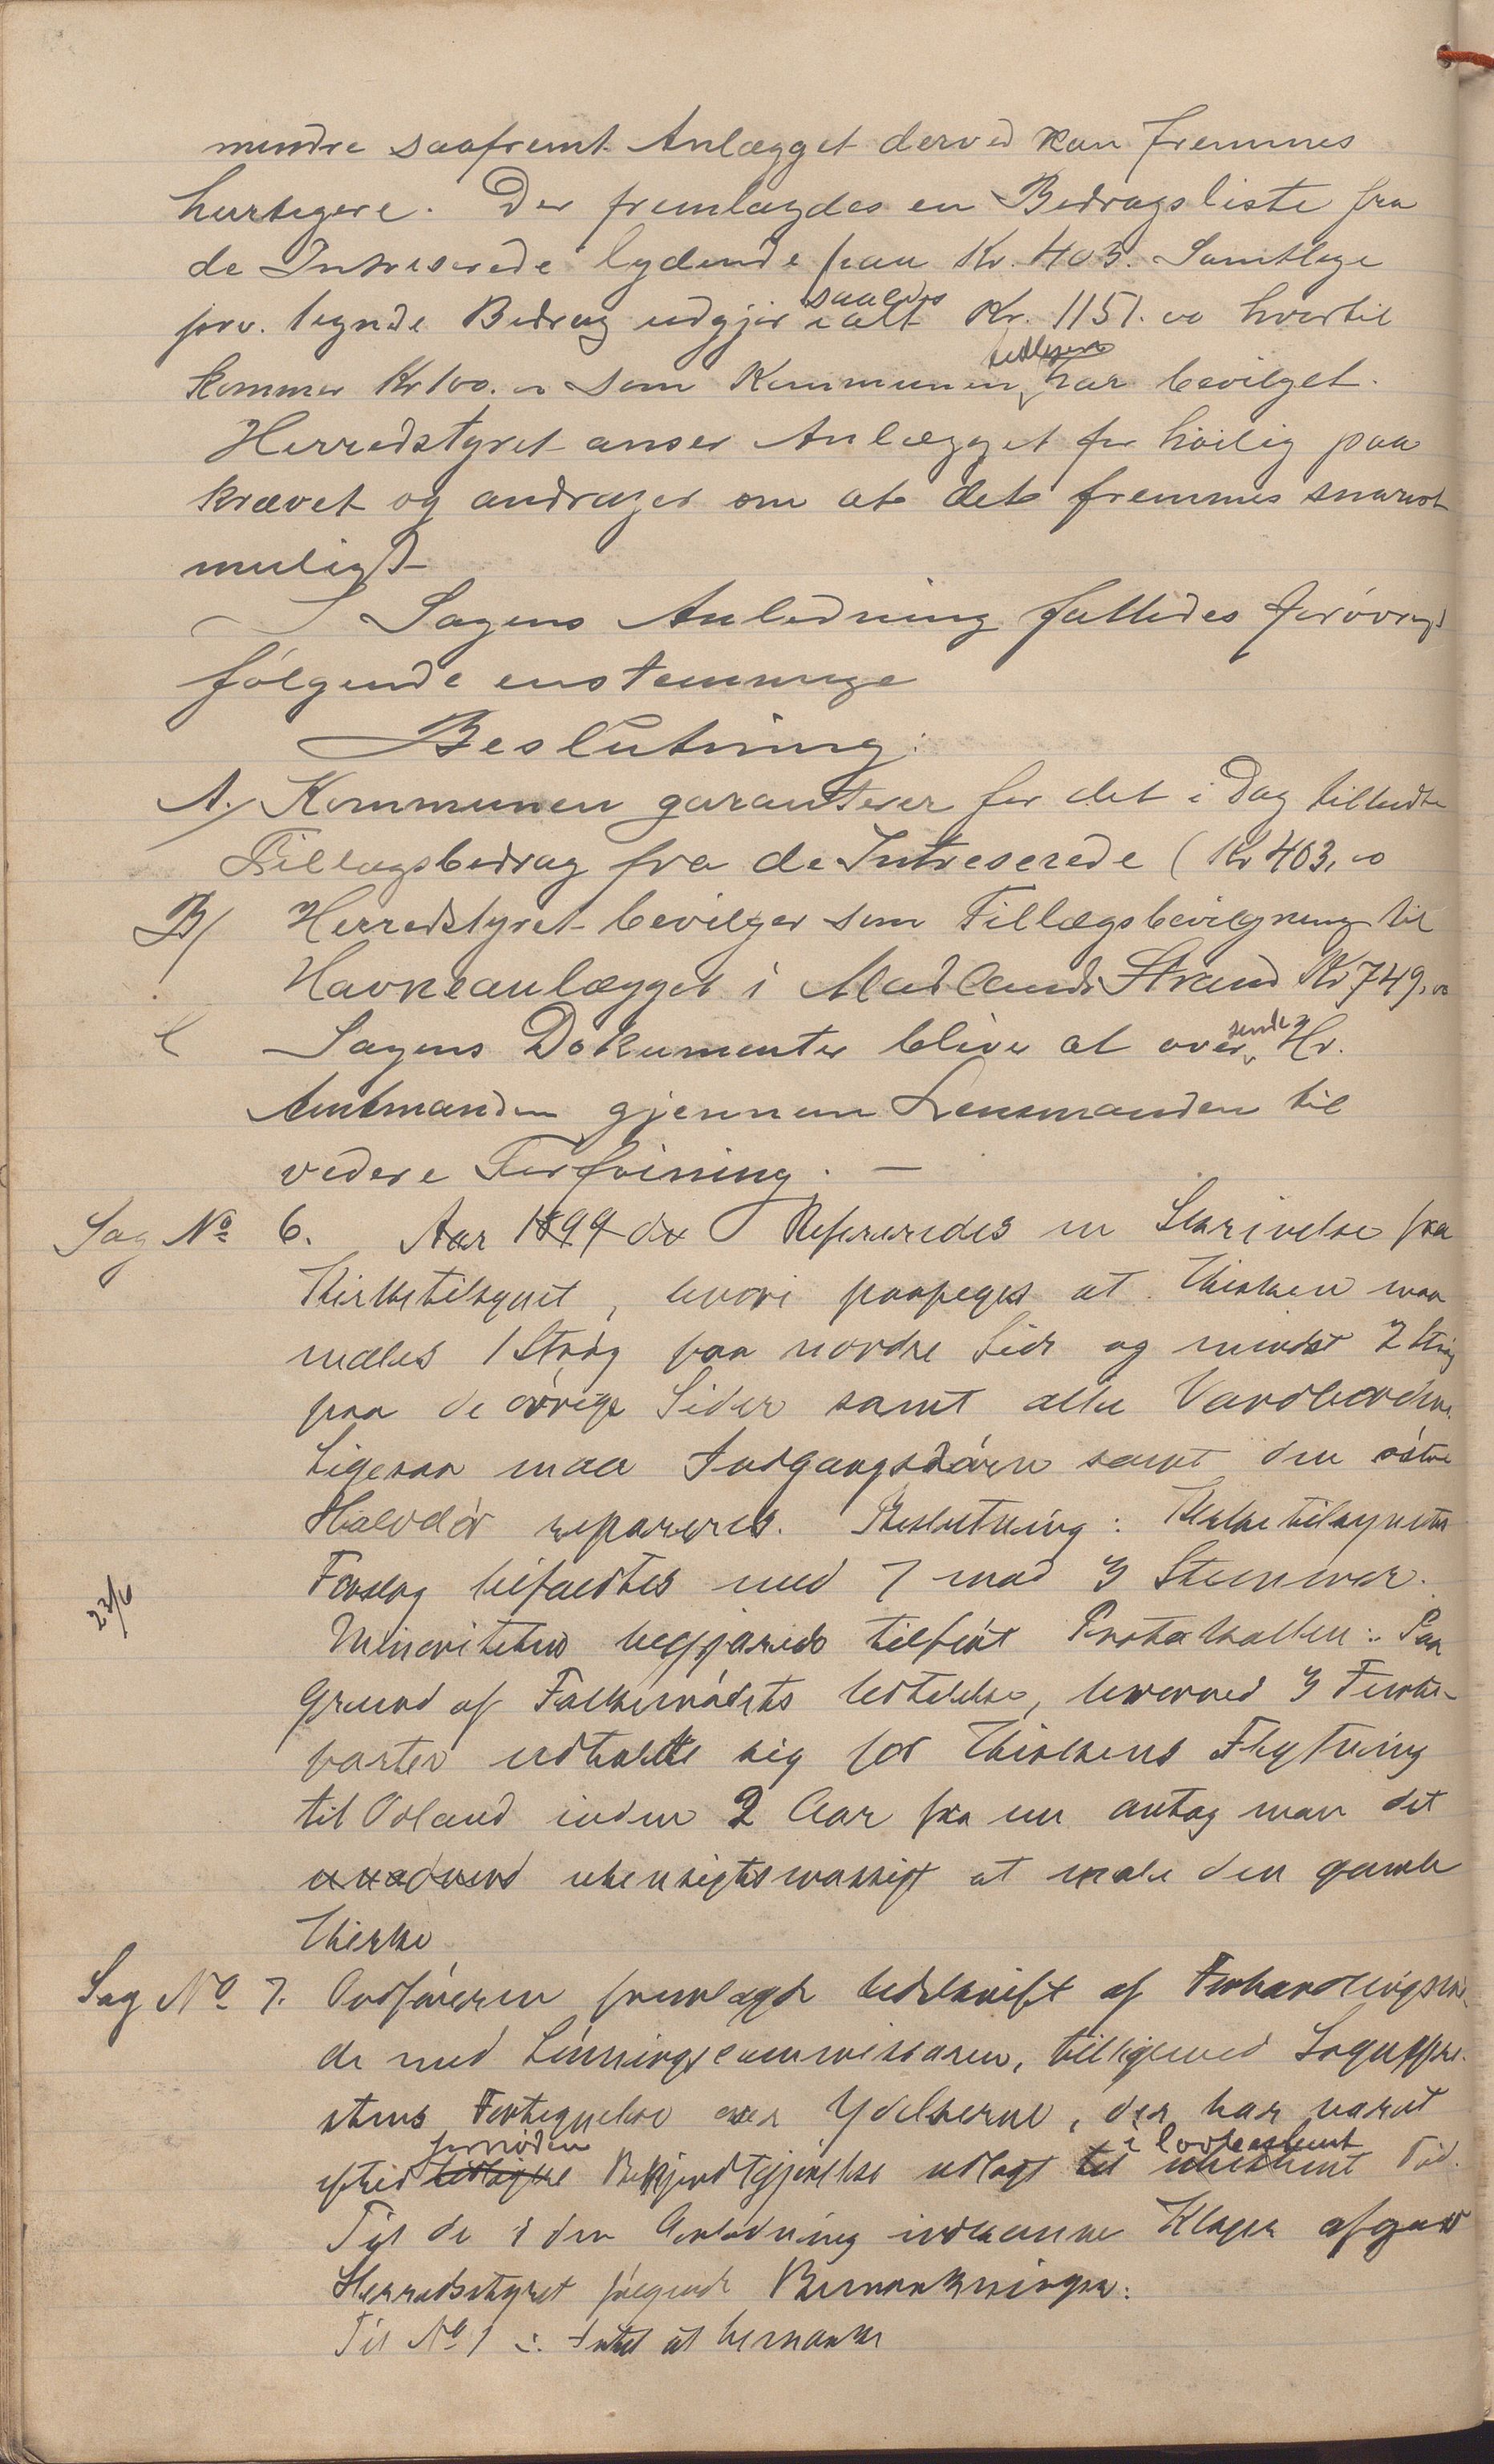 mindre saafremt Anlægget derved kan fremmes
hurtigere. Der fremlagdes en Bidragsliste fra
de Intreserede lydende paa Kr. 403. Samtlige
prv. tegnede Bidrag udgjør saaledes ialt Kr. 1151.00 hvortil
kommer Kr 100.00 som Kommunen tidligere har bevilget.
Herredstyret anser Anlægget for høilig paa
krævet og andrager om at det fremmes snarest
muligt
I Sagens Anledning fattedes forøvrigt
følgende enstemmige
Beslutning:
A/ Kommunen garanterer for det i Dag tilbudte
Tillægsbidrag fra de Intreserede (Kr 403,00
B/ Herredstyret bevilger som Tillægsbevilgning til
Havneanlægget i Madlands Strand Kr 749,00
C Sagens Dokumenter bliver at oversende Hr.
Amtmanden gjennem Lensmanden til
videre Forføining. —
Sag No 6. Aar 1899 de Refereredes en Skrivelse fra
Kirketilsynet, hvori paapeges at Kirken maa
males 1 Strøg paa nordre Side og mindst 2 Strøg
paa de øvrige Sider samt alle Vandbordene.
Ligesaa maa Indgangsdøren samt den østre
Halvdør repareres. Beslutning: Kirketilsynets
Forslag bifaldtes med 7 mod 3 Stemmer.
23/6
Minoriteten begjærede tilført Protokollen: Paa
Grund af Folkemødets Udtalelse, hvorved 3 Fjerde-
parter udtalte sig for Kirkens Flytning
til Oland inden 2 Aar fra nu antog man det
unødvend uhensigtsmæssigt at male den gamle
Kirke
Sag No 7. Ordføreren fremlagde Udskrift af Forhandlingsmø-
de med Lønningscommissionen, tilligemed Sognepræ-
stens Fortegnelse over Ydelserne, der har været
efter tidligere fornøden Bekjendtgjørelse udlagt til i lovbestemt Tid.
Til de i den Anledning indkomne Klager afgav
Herredsstyret følgende Bemærkninger:
Til No 1 : Intet at bemærke